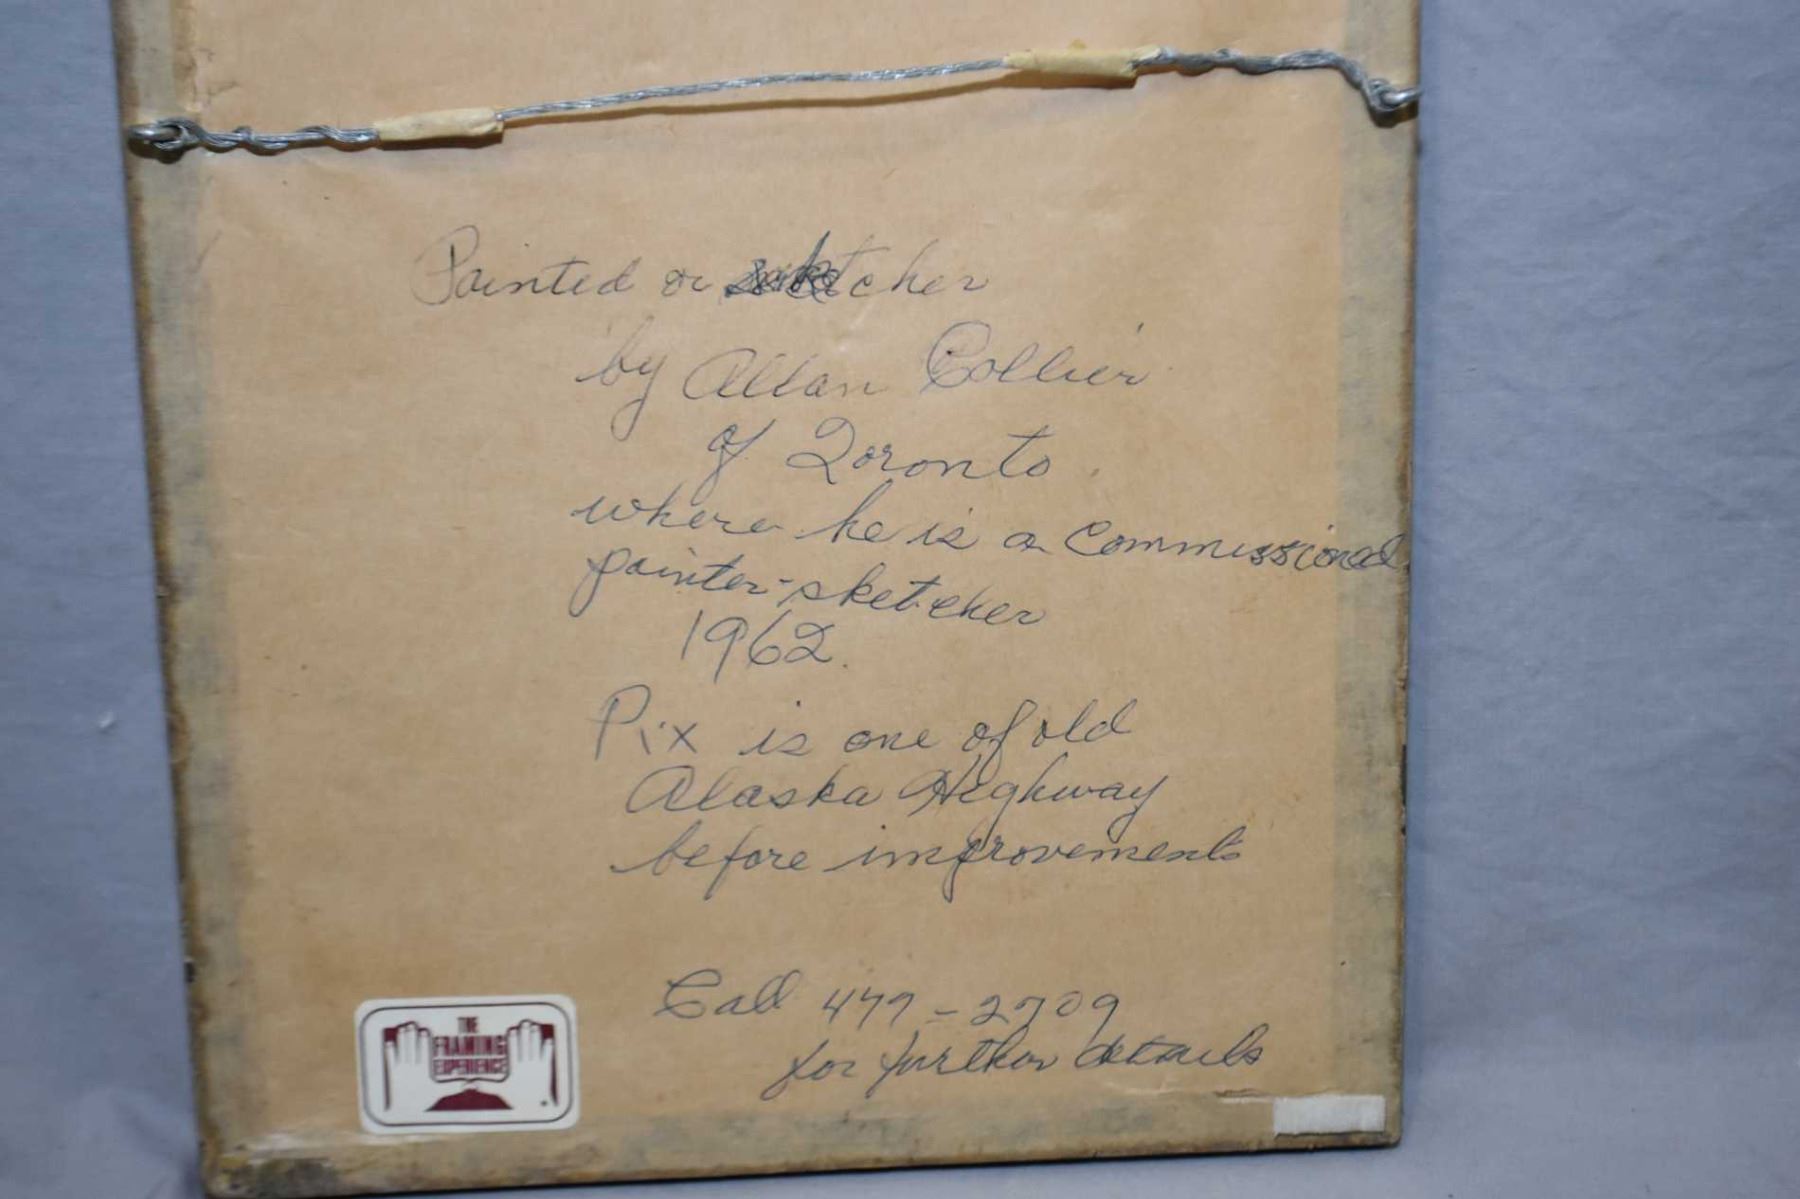 Painted or sketcher
by Allan Collier
of Toronto
where he is a commissioned
painter-sketcher
1962.
Pix is one of old
Alaska Highway
before improvements
Call 477-2709
for further details
THE
FRAMING
EXPERIENCE